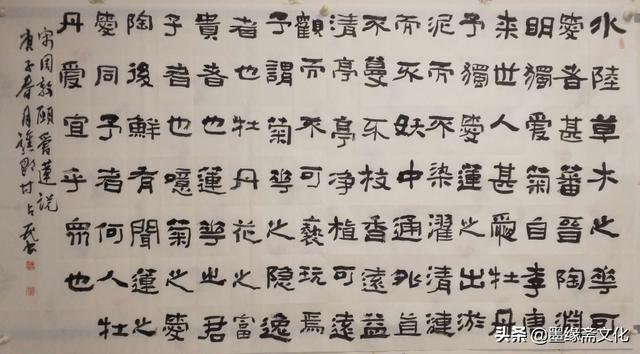 水陸草木之華可
愛者甚蕃晉陶淵
明獨愛菊自李唐
来世人甚愛牡丹
予獨愛蓮之出淤
泥而不染濯清漣
而不妖中通外直
不蔓不枝香遠益
清亭亭净植可遠
觀而不可褻玩焉
予謂菊華之隐逸
者也牡丹花之富
貴者也蓮華之君
子者也噫菊之愛
陶後鮮有聞蓮之
愛同予者何人牡
丹愛宜乎衆也
宋周敦頤爱蓮説
庚子春月譙郡
头条 @墨缘斋文化